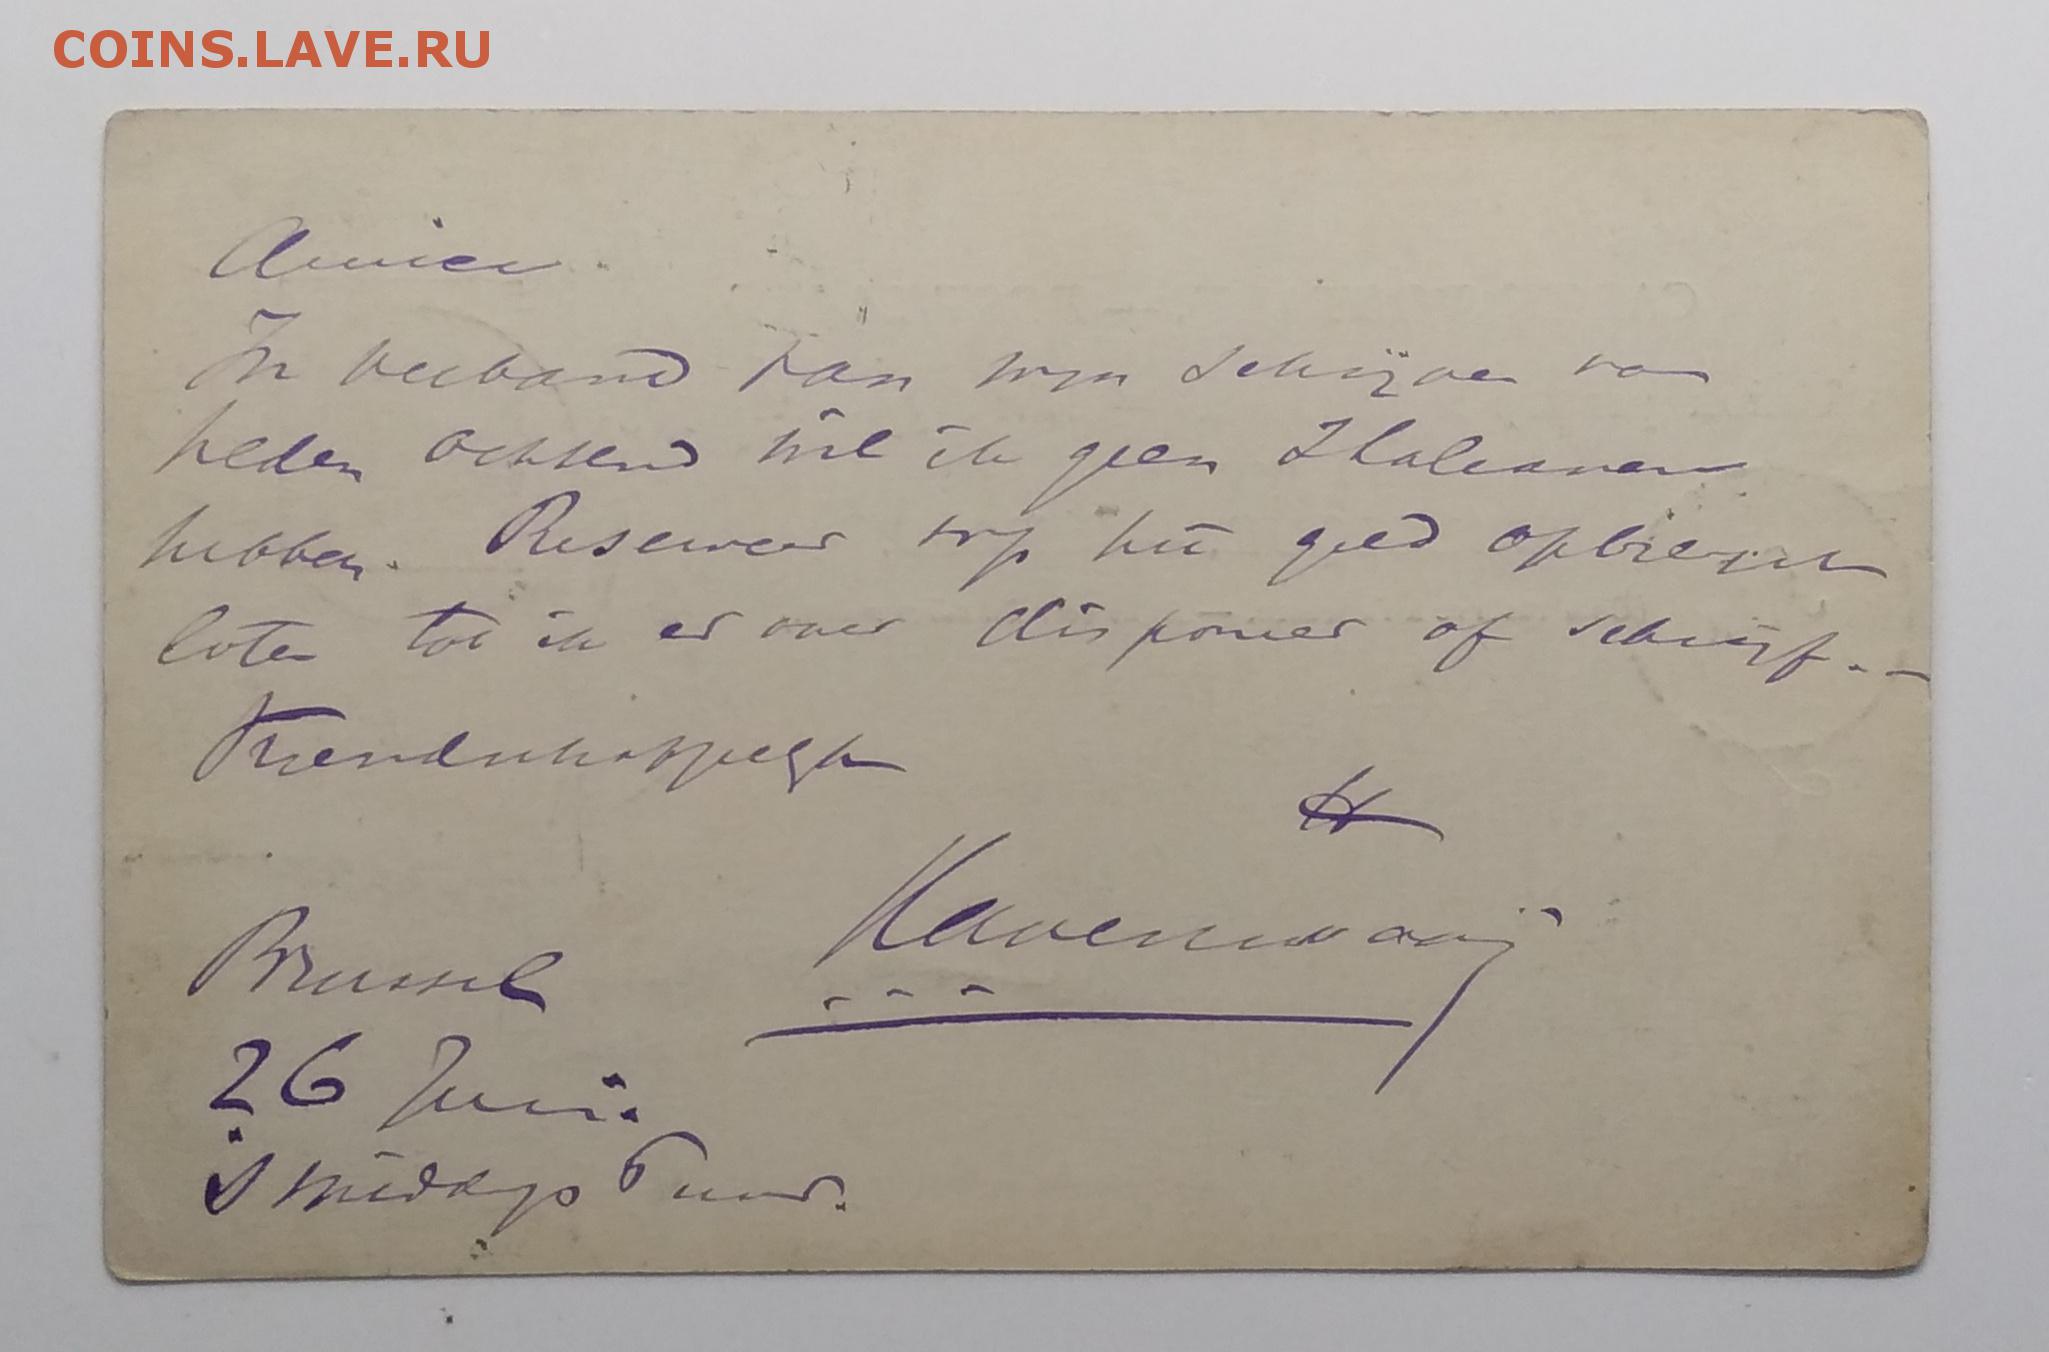 COINS.LAVE.RU
Amice
In verband van myn schrijven van
heden ochtend wil ik geen Italianen
hebben. Reserveer my het geld
loten tot ik er over disponeer of schrijf. -
Vriendschappelijk
H
Brussel
26 Juni.
's middags 6 uur.